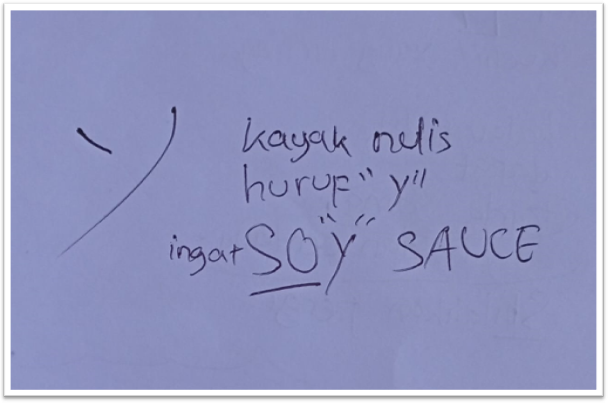 ソ
kayak nulis
huruf "y"
ingat SO"Y" SAUCE